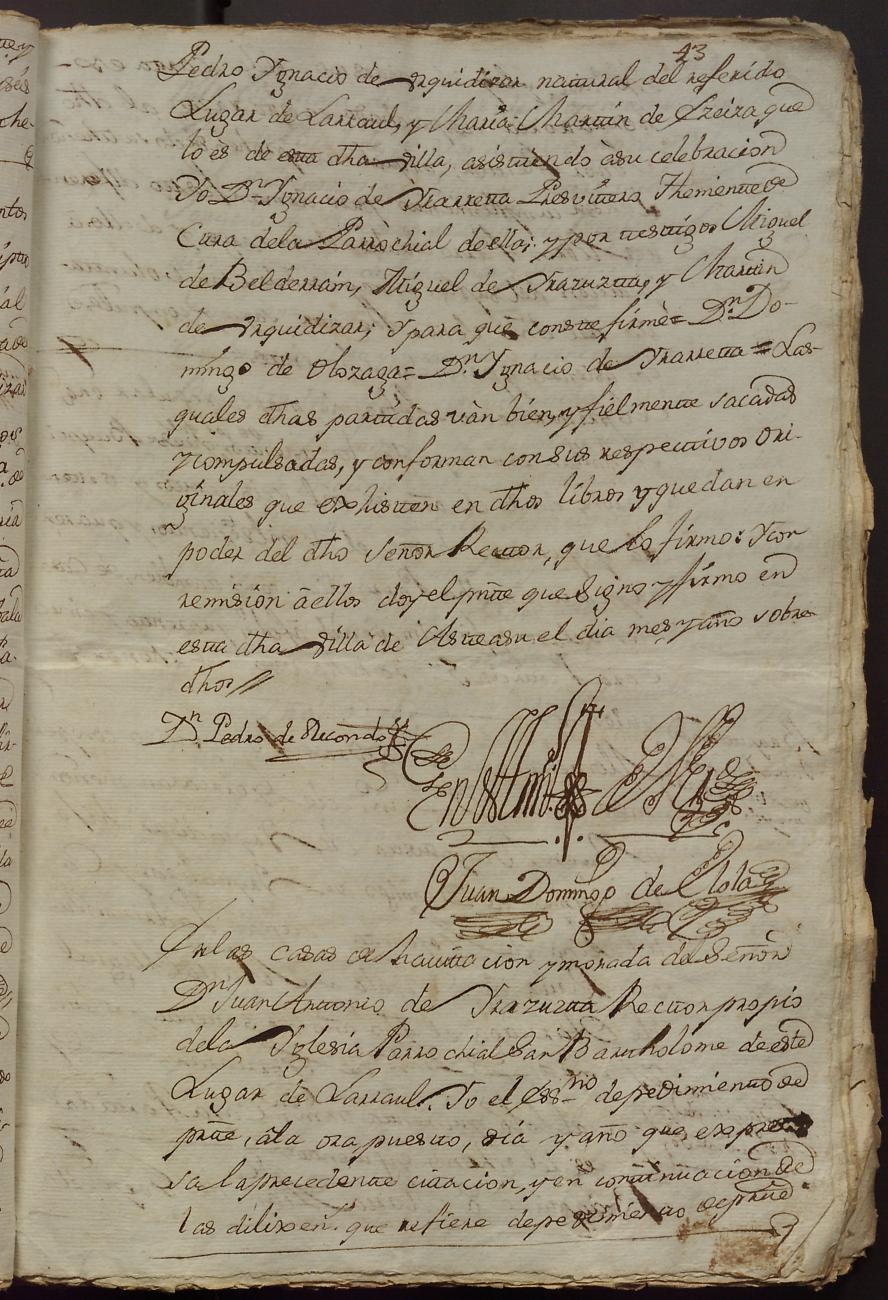 43
Pedro Ygnacio de Urquidizar natural del referido
Lugar de Larraul, y Maria Martin de Yzeiza que
lo ès de esta dha Villa, asistiendo à su celebracion
Yo Dn Ygnacio de Yrarreta Presvitero Theniente de
Cura dela Parrochial de ella; y por testigos Miguel
de Belderrain, Miguel de Yrazuzta, y Martin
de Urquidizar; y para que conste firmè= Dn Do-
mingo de Olozaga= Dn Ygnacio de Yrarreta = Las-
quales dhas partidas vàn bien, y fielmente sacadas
y compulsadas, y conforman con sus respectivos Ori-
ginales que exhisten en dhos libros y quedan en
poder del dho Señor Rector, que lo firmo: Y con
remision à ellos doy el pnte que Signo y firmo en
esta dha Villa de Asteasu el dia mes y año sobre
dhos//
Dn Pedro de Recondo
En testimo de Verd
Juan Domingo de
En las casas de havitacion y morada del Señor
Dn Juan Antonio de Yrazuzta Rector propio
dela Yglesia Parrochial San Bartholome de este
Lugar de Larraul. Yo el Essno de pedimiento de
prte, à la ora puesto, dia y año que expre
sa la precedente citacion, y en continuacion de
las dilixens que refiere de pedimiento de prte